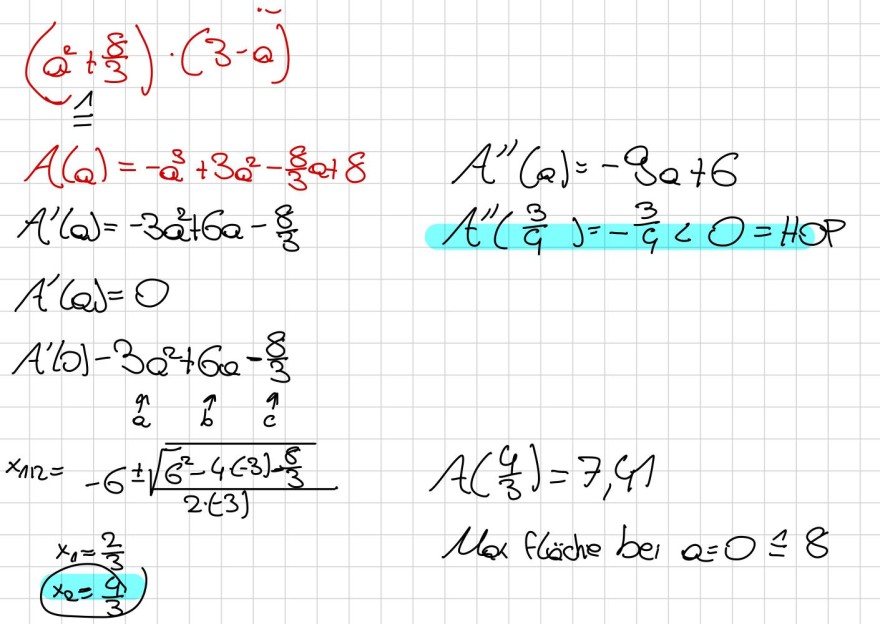 (a² + 8/3) · (3-a)
≙
A(a) = -a³ + 3a² - 8/3a + 8
A'(a) = -3a² + 6a - 8/3
A'(a) = 0
A'(0) - 3a² + 6a - 8/3
a b c
x₁/₂ = -6 ± √(6² - 4·(-3)·-8/3) / 2·(-3)
x₁ = 2/3
x₂ = 4/3
A''(a) = -9a + 6
A''(3/4) = -3/4 < 0 = HOP
A(4/3) = 7,41
Max fläche bei a=0 ≙ 8